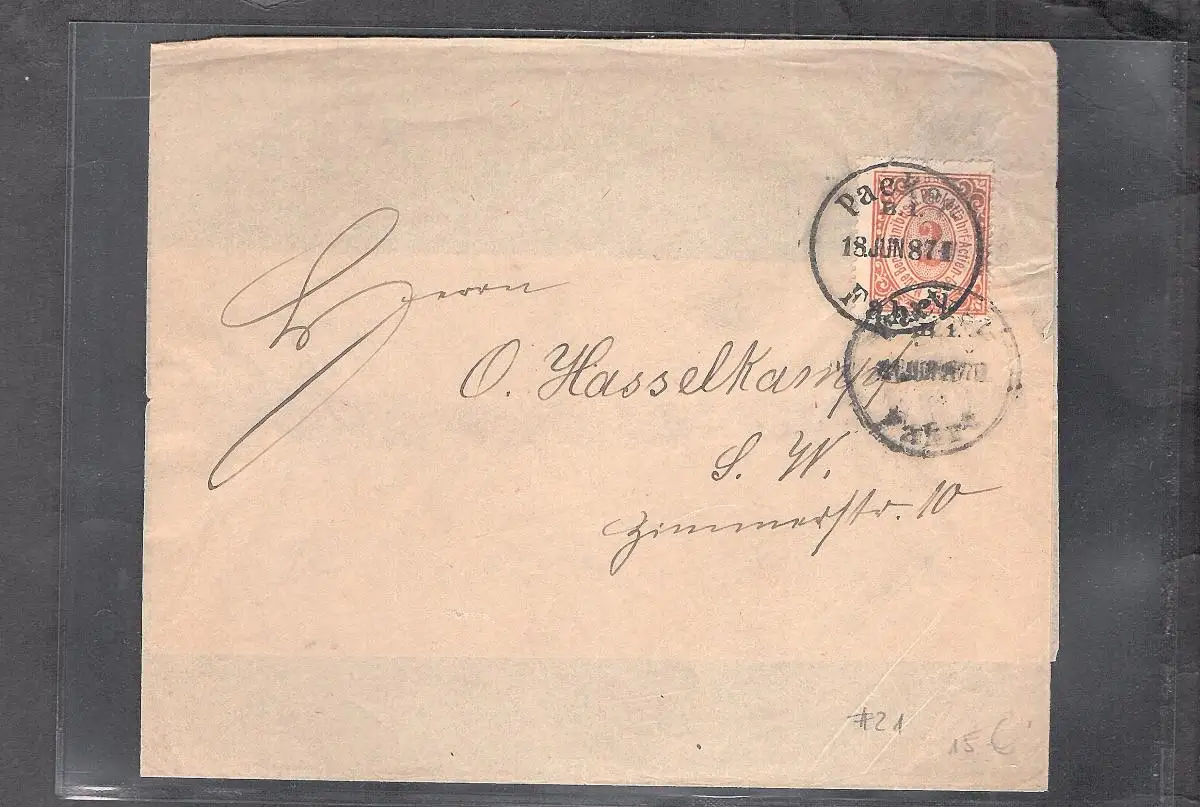 Packet
B. 1.
18 JUN 87
Fahrt
2
Fahrt
Herrn
O. Hasselkampf
S. W.
Zimmerstr. 10
#21
15 €